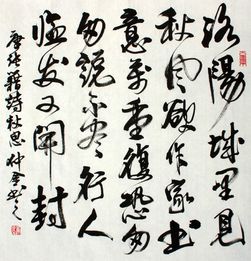 洛陽城里見
秋風欲作家書
意萬重復恐匆
匆說不盡行人
臨發又開封
唐張籍詩秋思 仲